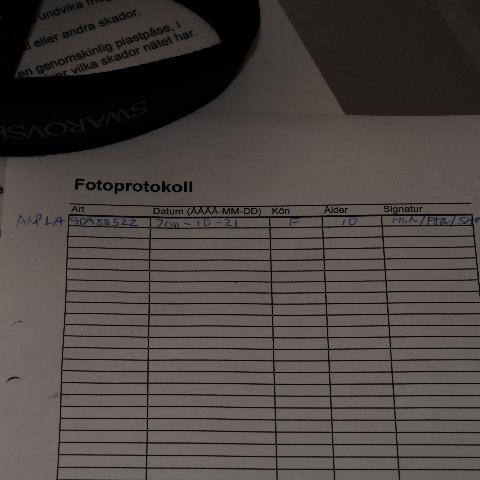 undvika
l eller andra skador.
en genomskinlig plastpåse, i
vilka skador nätet har.
SWAROVSK
Fotoprotokoll
Art Datum (ÅÅÅÅ-MM-DD) Kön Ålder Signatur
ANPLA 90A88522 2011-10-21 F 10 MSN/